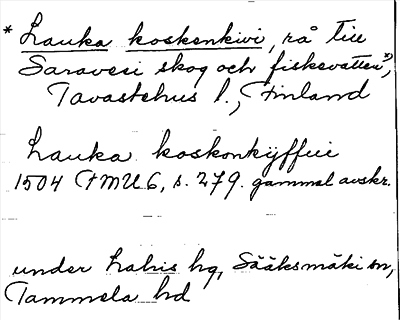 * Lauka koskenkivi, rå till
Saravesi skog och fiskevatten*),
Tavastehus l., Finland
Lauka koskonkÿffui
1504 FMU 6, s. 279. gammal avskr.
under Lahis hg, Sääksmäki sn,
Tammela hd